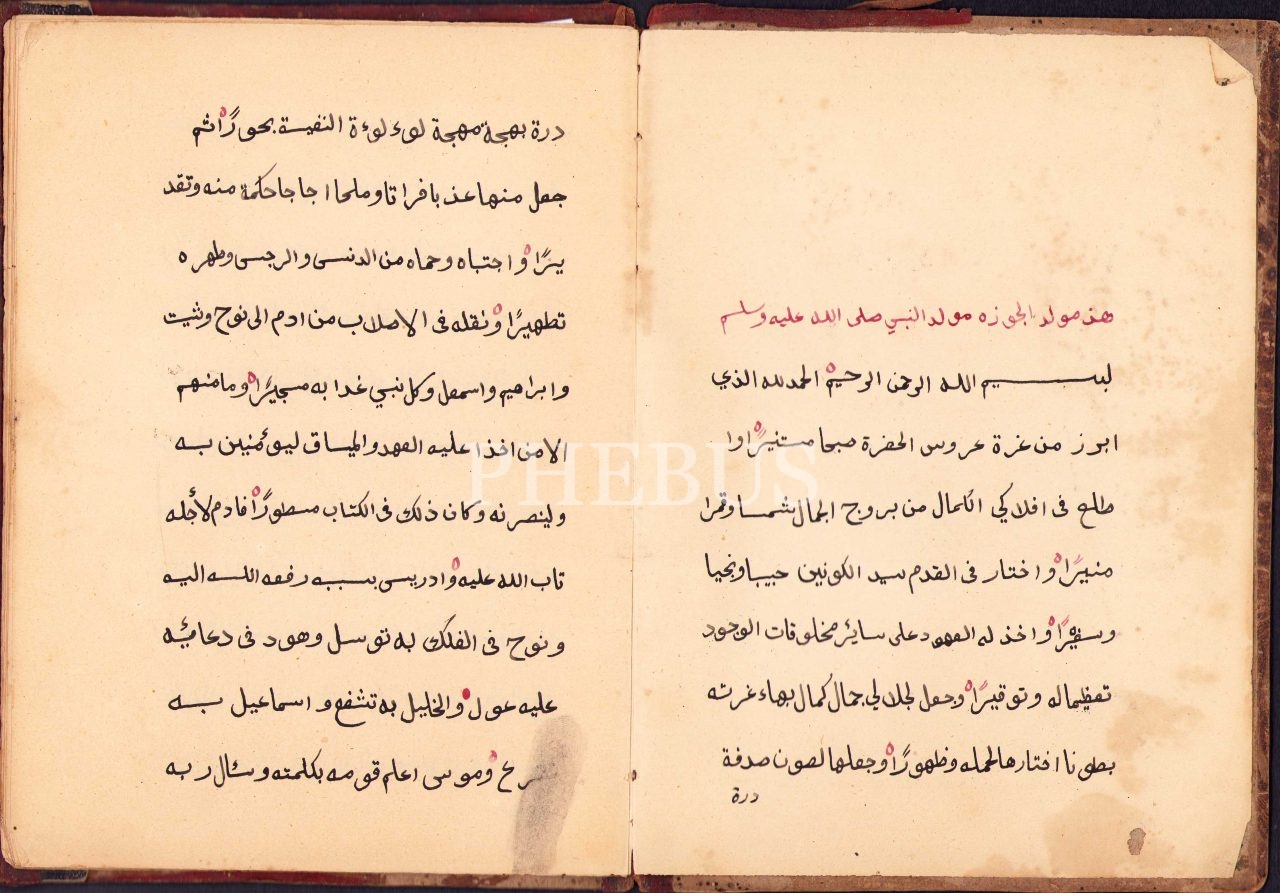 هذ مولد الجوزه مولد النبي صلى الله عليه وسلم
بسم الله الرحمن الرحيم الحمد لله الذي
ابرز من غرة عروس الحضرة صبحا مستنيرًا وا
طلع فى افلاكي الكمال من بروج الجمال شمسا وقمرا
منيرًا واختار فى القدم سيد الكونين حبيبا ونجيا
وسفيرًا واخذ له العهود على سائر مخلوقات الوجود
تعظيما له وتوقيرًا وجعل لجلالي جمال كمال بهاء غرته
بطونا اختارها لحمله وظهورًا وجعلها لصون صدفة
درة
درة بهجة مهجة لوء لوءة النفيسة بحورًا ثم
جعل منها عذبا فراتا وملحا اجاجا حكمة منه وتقد
يرًا واجتباه وحماه من الدنس والرجس وطهره
تطهيرًا ونقله فى الاصلاب من ادم الى نوح وشيت
وابراهيم واسمعل وكل نبي غدا به مسجيرًا وما منهم
الا من اخذا عليه العهد والميساق ليوءمنين به
ولينصرنه وكان ذلك فى الكتاب مسطورًا فادم لأجله
تاب الله عليه وادريس بسببه رفعه الله اليه
ونوح فى الفلك به توسل وهود فى دعائه
عليه عول والخليل به تشفع واسماعيل به
وموسى اعلم قومه بكلمته وسئال ربه
PHEBUS